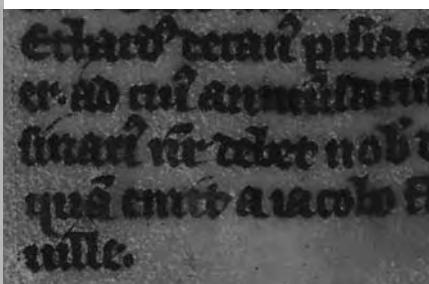 Erhard⁹ decan⁹ pisiac
er. ad cui⁹ anniu̅sariu̅
sinari⁹ nr̅ debet nob̅
quā emit a iacobo
uille.